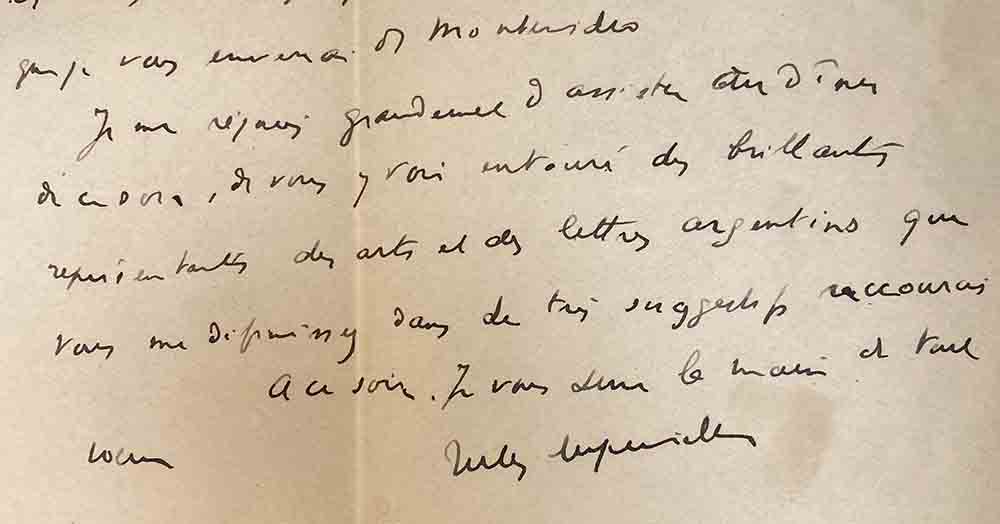 que je vous enverrai de Montevideo
Je me réjouis grandement d'assister au dîner
de ce soir, de vous y voir entouré des brillants
représentants des arts et des lettres argentins que
vous me définissez dans de très suggestifs raccourcis
A ce soir. Je vous serre la main de tout
coeur
Jules Supervielle